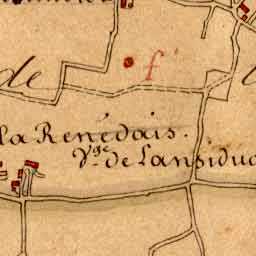 de
f
la Renédais.
Vge de Lansiduc